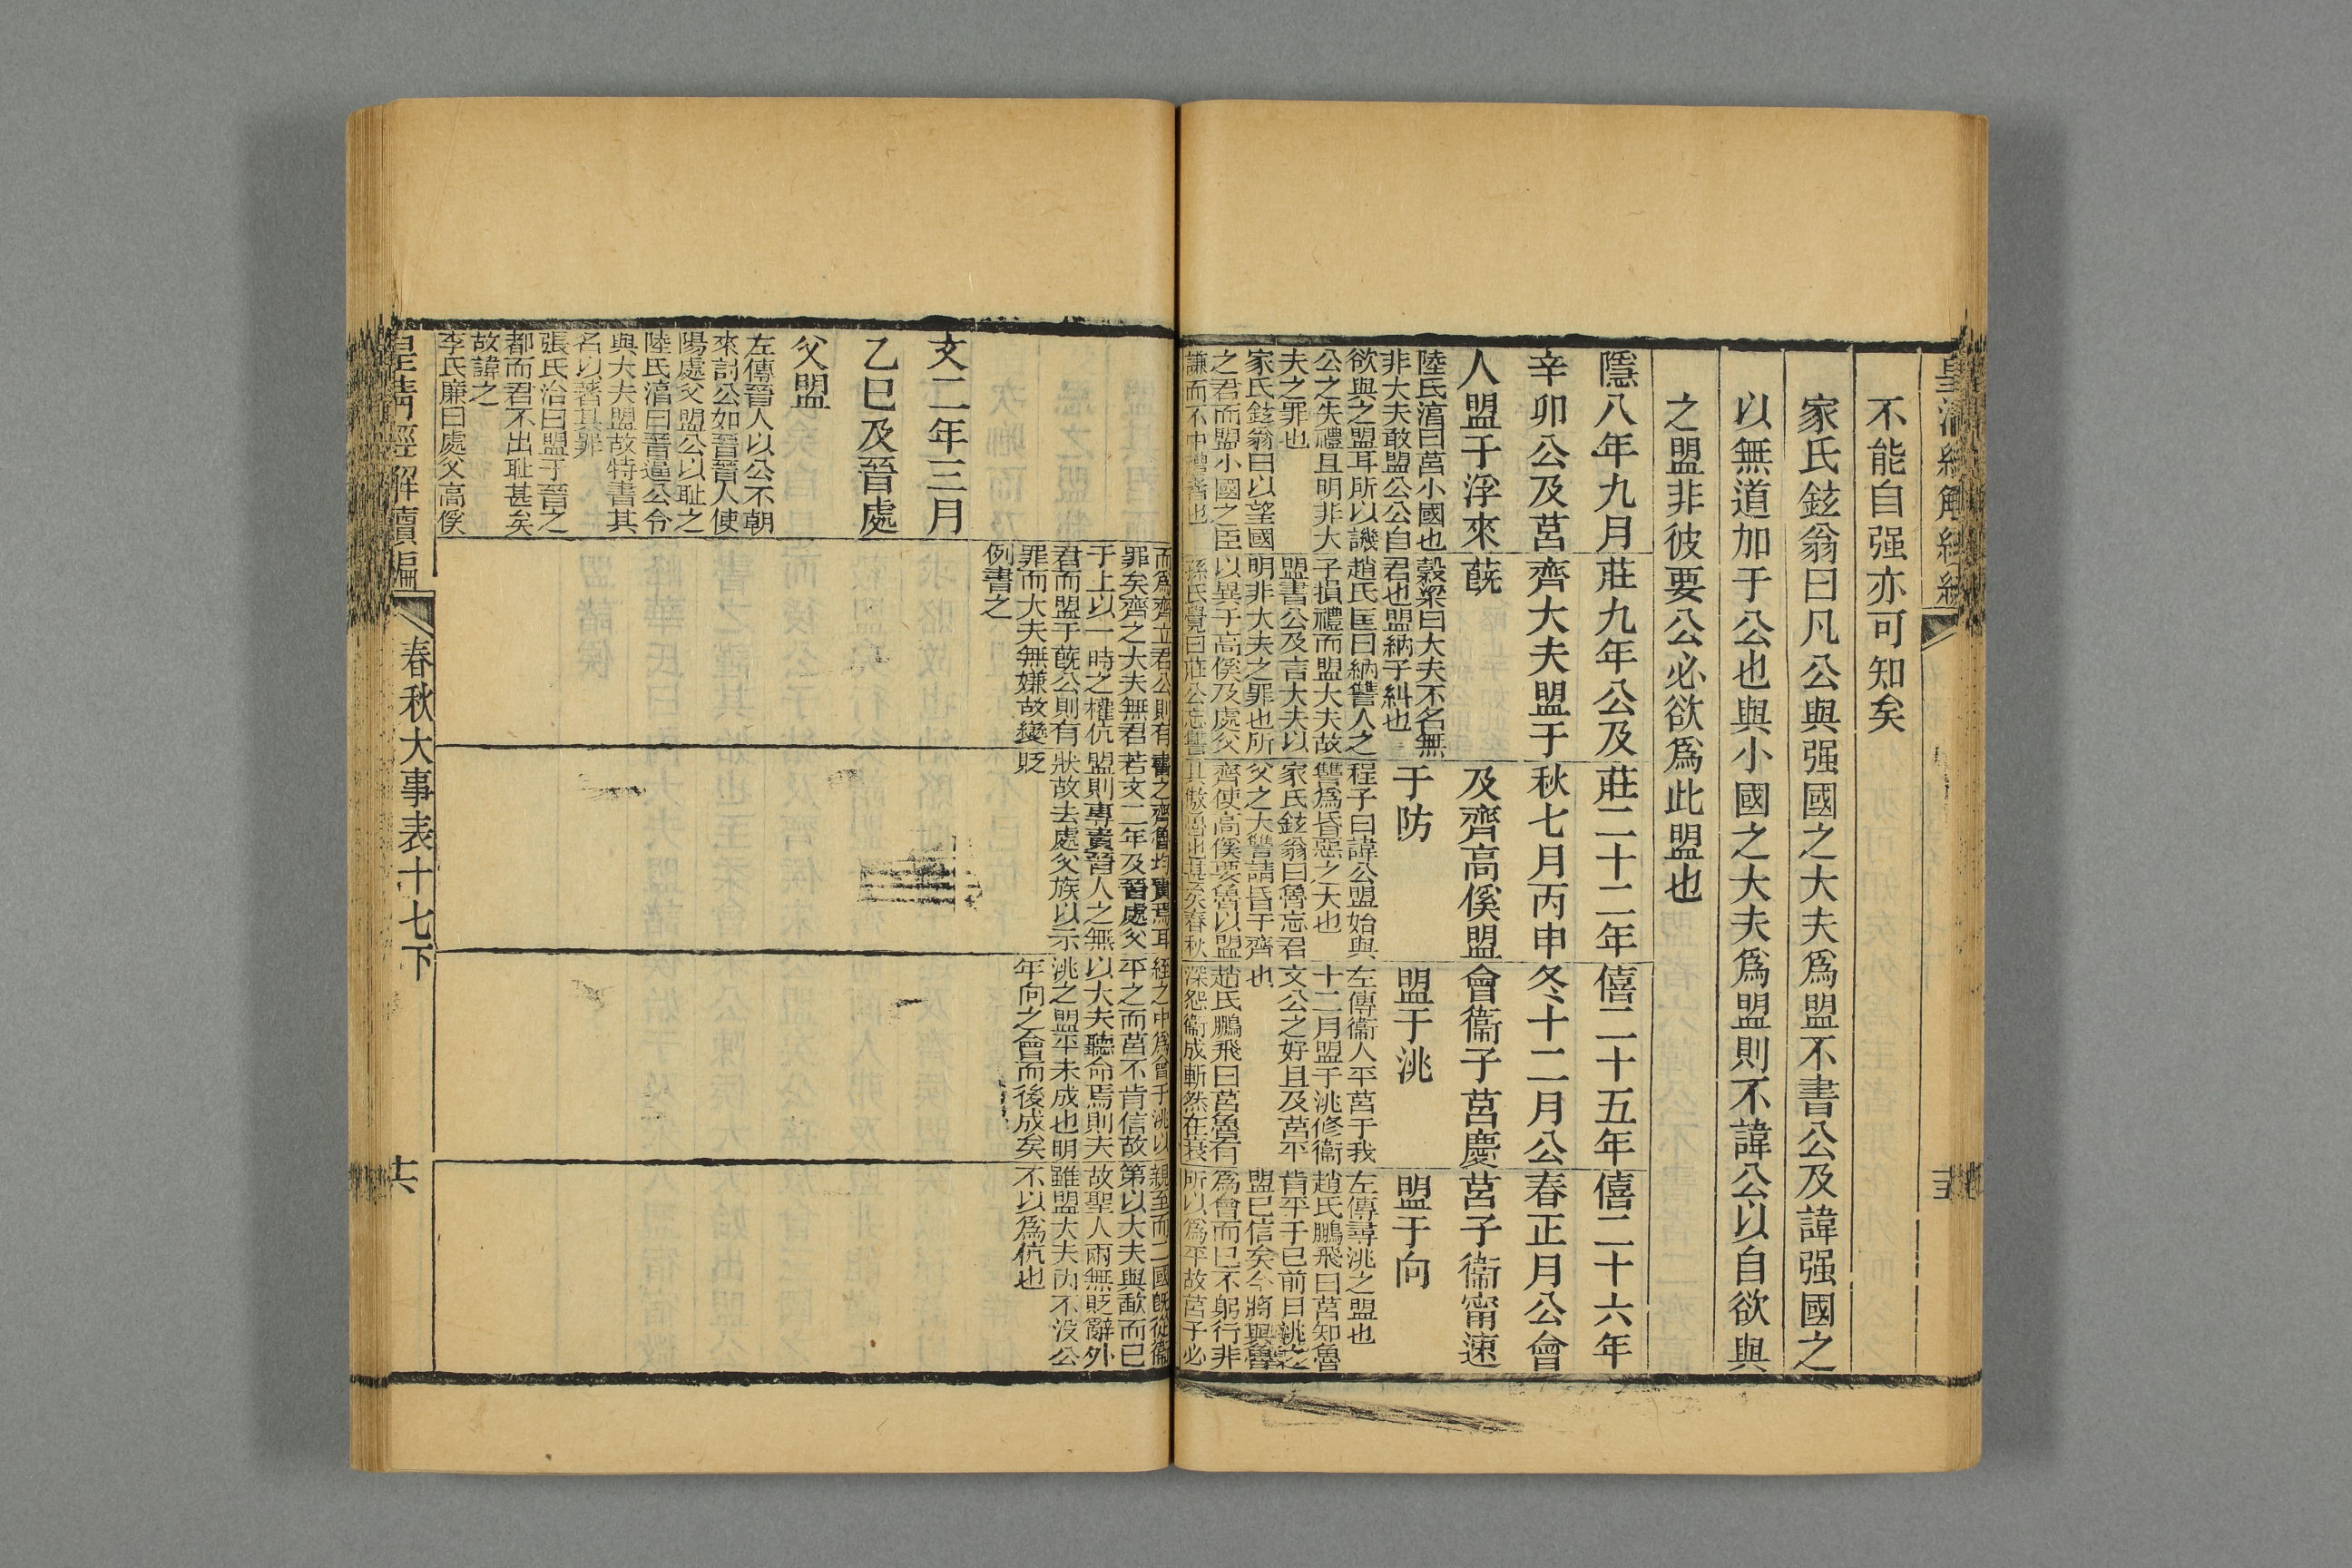 皇清經解續編
不能自强亦可知矣
家氏鉉翁曰凡公與强國之大夫爲盟不書公及諱强國之
以無道加于公也與小國之大夫爲盟則不諱公以自欲與
之盟非彼要公必欲爲此盟也
隱八年九月
辛卯公及莒
人盟于浮來
陸氏淳曰莒小國也
非大夫敢盟公公自
欲與之盟耳所以譏
公之失禮且明非大
夫之罪也
家氏鉉翁曰以望國
之君而盟小國之臣
謙而不中禮者也
莊九年公及
齊大夫盟于
蔇
穀梁曰大夫不名無
君也盟納子糾也
趙氏匡曰納讐人之
子損禮而盟大夫故
盟書公及言大夫以
明非大夫之罪也所
以異于高傒及處父
孫氏覺曰莊公忘讐
莊二十二年
秋七月丙申
及齊高傒盟
于防
程子曰諱公盟始與
讐爲昏惡之大也
家氏鉉翁曰魯忘君
父之大讐請昏于齊
齊使高傒要魯以盟
其傲魯也甚矣春秋
僖二十五年
冬十二月公
會衞子莒慶
盟于洮
左傳衞人平莒于我
十二月盟于洮修衞
文公之好且及莒平
也
趙氏鵬飛曰莒魯有
深怨衞成斬然在衰
僖二十六年
春正月公會
莒子衞甯速
盟于向
左傳尋洮之盟也
趙氏鵬飛曰莒知魯
肯平于已前日洮之
盟已信矣今將與魯
爲會而已不躬行非
所以爲平故莒子必
文二年三月
乙巳及晉處
父盟
左傳晉人以公不朝
來討公如晉晉人使
陽處父盟公以恥之
陸氏淳曰晉逼公令
與大夫盟故特書其
名以著其罪
張氏治曰盟于晉之
都而君不出恥甚矣
故諱之
李氏廉曰處父高傒
而爲齊立君公則有
罪矣齊之大夫無君
于上以一時之權伉
君而盟于蔇公則有
罪而大夫無嫌故變
例書之
書之齊魯均責焉耳
若文二年及晉處父
盟則專責晉人之無
狀故去處父族以示
貶
絰之中爲會于洮以
平之而莒不肯信故
以大夫聽命焉則夫
洮之盟平未成也明
年向之會而後成矣
親至而二國旣從衞
第以大夫與歃而已
故聖人兩無貶辭外
雖盟大夫內不沒公
不以爲伉也
皇清經解續編
春秋大事表十七下
十六